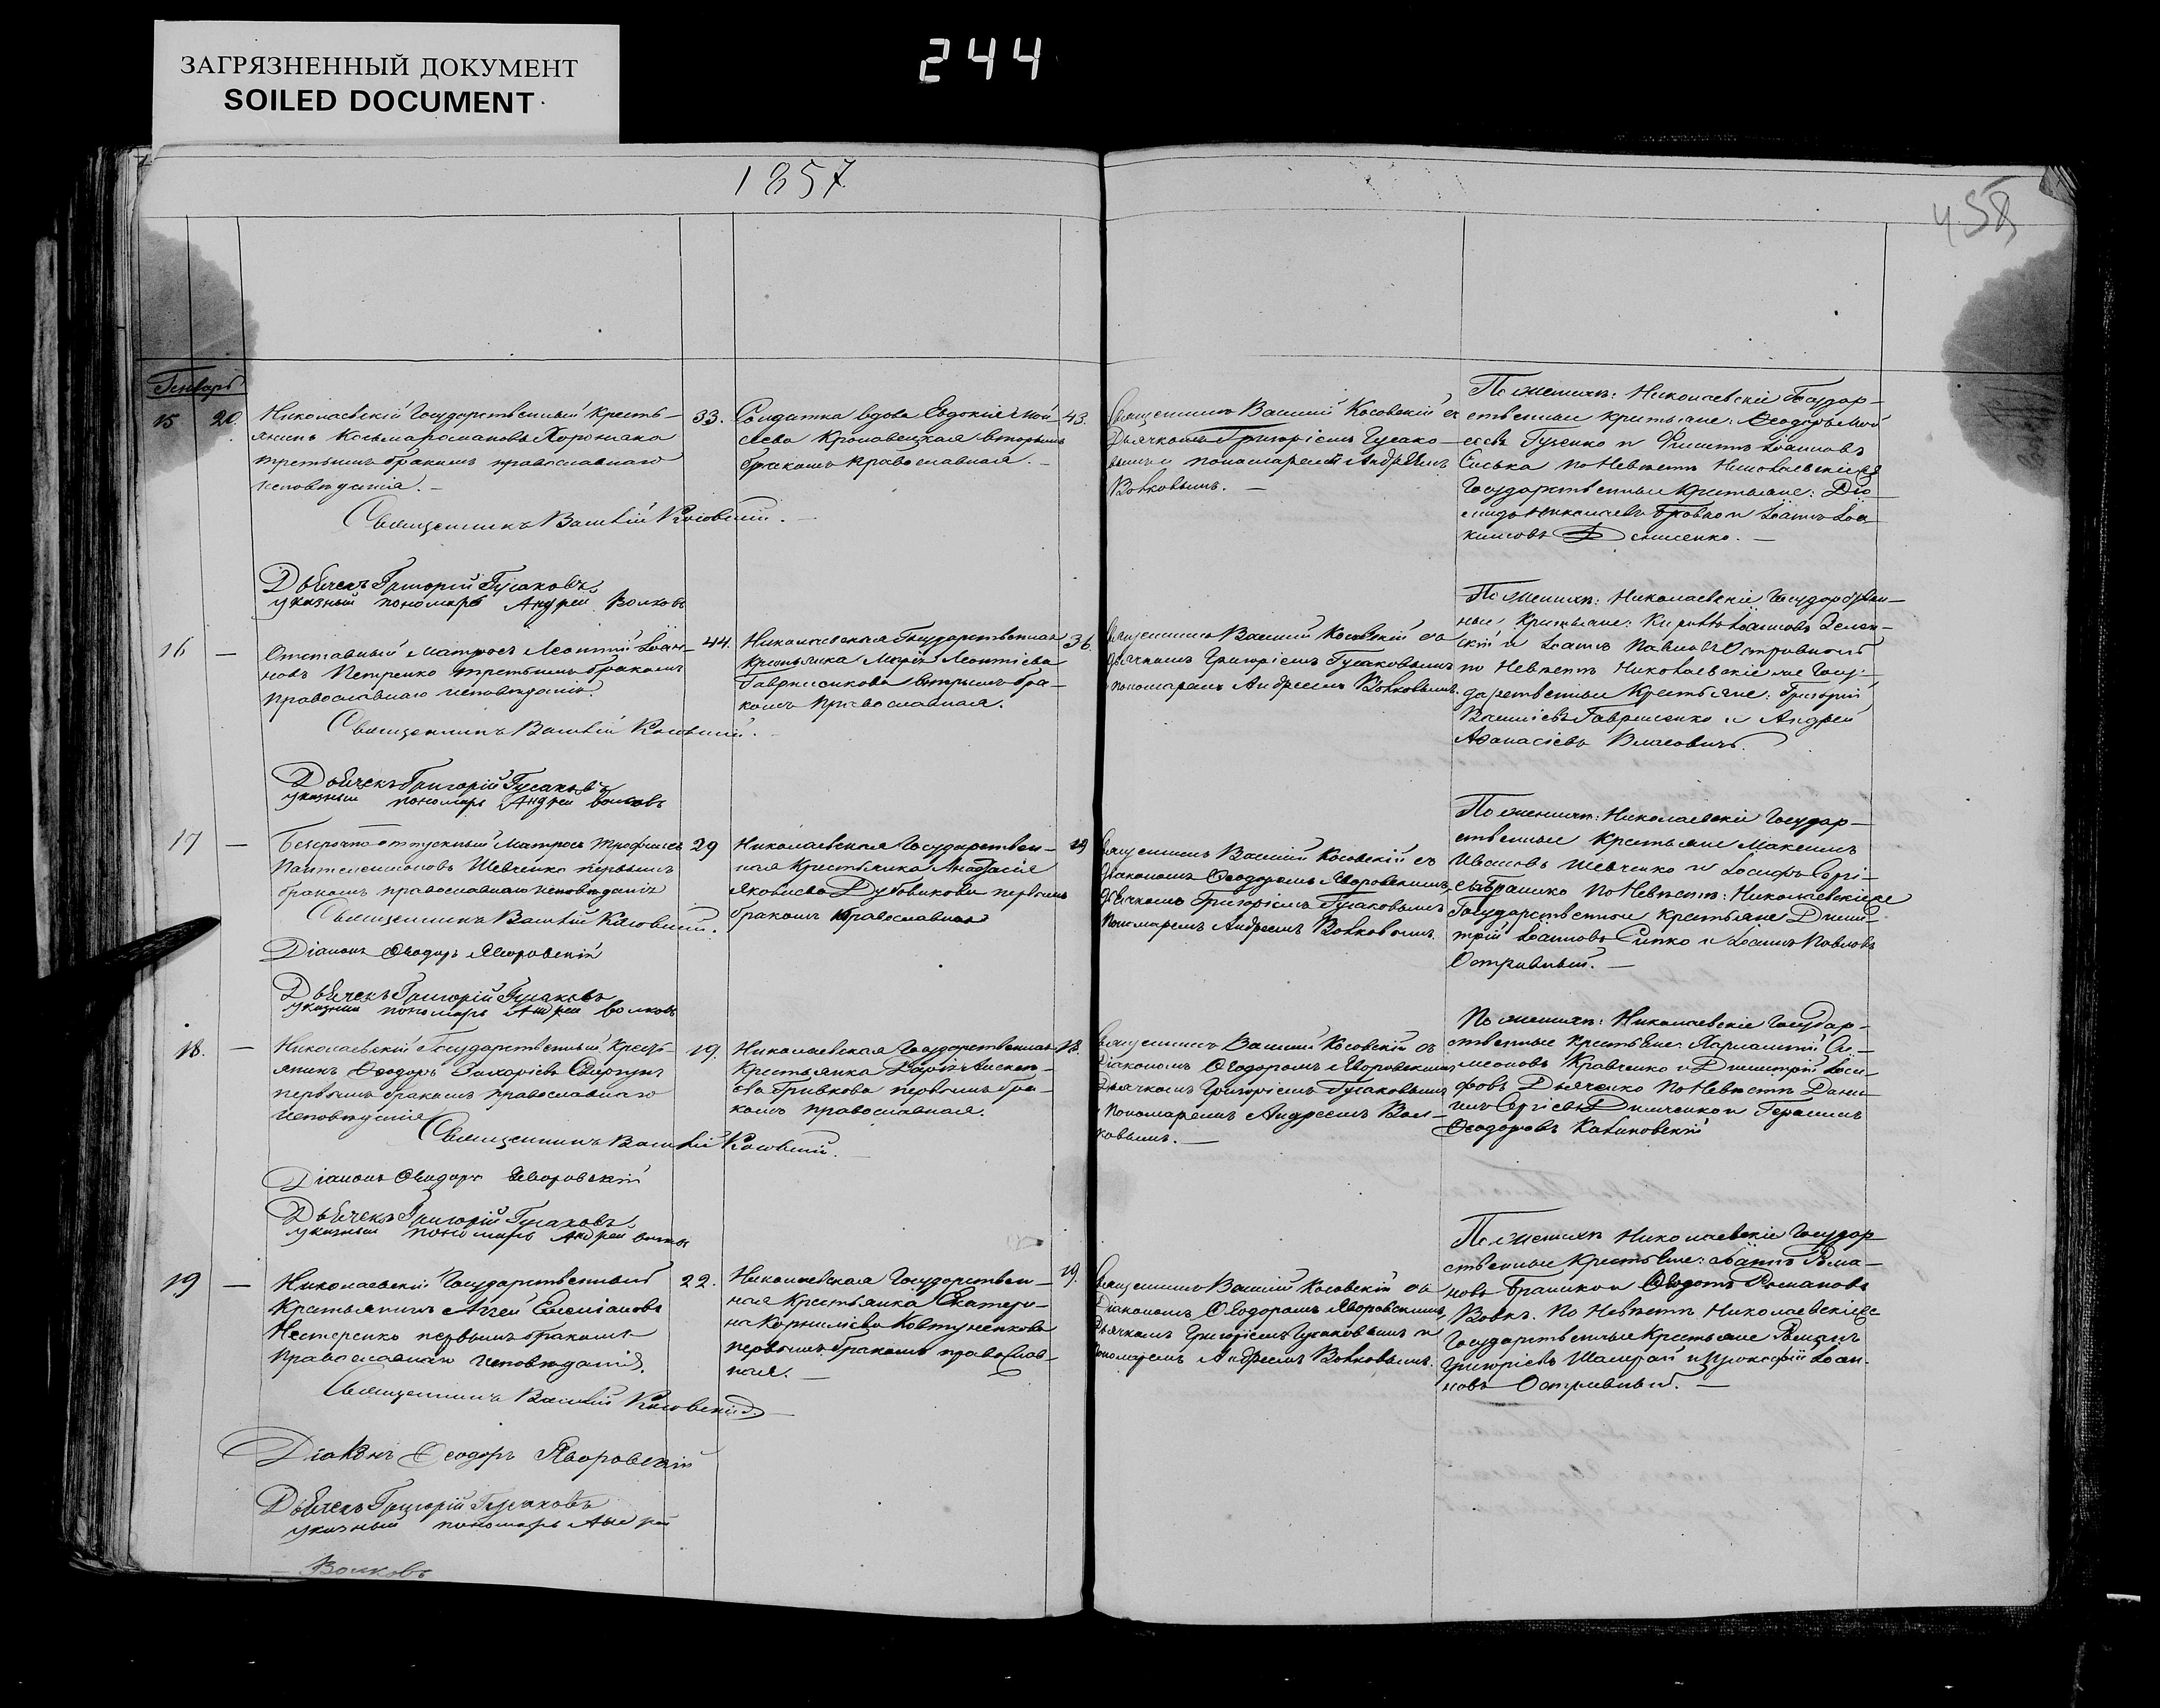 ЗАГРЯЗНЕННЫЙ ДОКУМЕНТ
SOILED DOCUMENT
244
1857
458
Генварь
15 20.
Николаевскій Государственный кресть-
янинъ Косьма Романовъ
третьимъ бракомъ православнаго
исповѣданія.
33.
Солдатка вдова Евдокія Мой-
сеева вторымъ
бракомъ православная.
43.
Священникъ Василій Косовскій съ
Дьячкомъ Григоріемъ Гусако-
вымъ и пономаремъ Андреемъ
Волковымъ.
По женихѣ: Николаевскіе Государ-
ственные крестьяне: Ѳеодоръ Мой
сеевъ Гуженко и Филиппъ Іоанновъ
по Невѣстѣ Николаевскіе же
Государственные крестьяне: Діо
мидъ Николаевъ и Іоаннъ Іоа
кимовъ Денисенко.
Священникъ Василій Косовскій.
Дьячекъ Григорій Гусаковъ
указный пономарь Андрей Волковъ
16 —
Отставный Матросъ Леонтій Іоан-
новъ Петренко третьимъ бракомъ
православнаго исповѣданія.
44.
Николаевская Государственная
крестьянка Марія Леонтіева
Гавришенкова вторымъ бра-
комъ православная.
36.
Священникъ Василій Косовскій съ
дьячкомъ Григоріемъ Гусаковымъ
пономаремъ Андреемъ Волковымъ.
По Женихѣ: Николаевскіе Государствен-
ные Крестьяне: Кириллъ Іоанновъ Зелен-
скій и Іоаннъ Павловъ Остривный
по Невѣстѣ Николаевскіе же Госу-
дарственные Крестьяне: Григорій
Василіевъ Гавришенко и Андрей
Аѳанасіевъ Власовичъ.
Священникъ Василій Косовскій.
Дьячекъ Григорій Гусаковъ
указный пономарь Андрей Волковъ
17 —
Безсрочно отпускный Матросъ Трофимъ
Пантелеимоновъ Шевченко первымъ
бракомъ православнаго исповѣданія
29
Николаевская Государствен-
ная Крестьянка Анастасія
Яковлева Дубовикова первымъ
бракомъ православная
19
Священникъ Василій Косовскій съ
Діакономъ Ѳеодоромъ Яворовскимъ,
Дьячкомъ Григоріемъ Гусаковымъ
Пономаремъ Андреемъ Волковымъ.
По женихѣ: Николаевскіе Государ-
ственные Крестьяне Максимъ
Ивановъ Шевченко и Іосифъ Сергі-
евъ по Невѣстѣ: Николаевскіе же
Государственные крестьяне Дими-
трій Іоанновъ Сипко и Іоаннъ Павловъ
Остривный.
Священникъ Василій Косовскій.
Діаконъ Ѳеодоръ Яворовскій
Дьячекъ Григорій Гусаковъ
указный пономарь Андрей Волковъ
18. —
Николаевскій Государственный Кресть-
янинъ Ѳеодоръ Захаріевъ
первымъ бракомъ православнаго
исповѣданія
19.
Николаевская Государственная
Крестьянка Дарія Алексѣ-
ева Гривкова первымъ бра-
комъ православная.
18.
Священникъ Василій Косовскій съ
Діакономъ Ѳеодоромъ Яворовскимъ
Дьячкомъ Григоріемъ Гусаковымъ
Пономаремъ Андреемъ Вол-
ковымъ.
По женихѣ: Николаевскіе Государ-
ственные крестьяне: Си-
меоновъ Кравченко и Димитрій Іоси-
фовъ Дьяченко по Невѣстѣ Дани-
илъ Сергіевъ Димченко и Герасимъ
Ѳеодоровъ Калиновскій
Священникъ Василій Косовскій.
Діаконъ Ѳеодоръ Яворовскій
Дьячекъ Григорій Гусаковъ
указный пономарь Андрей Волковъ
19 —
Николаевскій Государственный
Крестьянинъ Аггей Емеліановъ
Нестеренко первымъ бракомъ
православнаго исповѣданія.
22.
Николаевская Государствен-
ная Крестьянка Екатери-
на Корниліева Ковтуненкова
первымъ бракомъ православ-
ная.
19.
Священникъ Василій Косовскій съ
Діакономъ Ѳеодоромъ Яворовскимъ,
Дьячкомъ Григоріемъ Гусаковымъ и
пономаремъ Андреемъ Волковымъ.
По Женихѣ Николаевскіе Государ-
ственные Крестьяне: Іоаннъ Рома-
новъ и Ѳедотъ Романовъ
Вовкъ. По Невѣстѣ Николаевскіе же
Государственные Крестьяне Романъ
Григоріевъ и Прокофій Іоан-
новъ Остривный.
Священникъ Василій Косовскій
Діаконъ Ѳеодоръ Яворовскій
Дьячекъ Григорій Гусаковъ
указный пономарь Андрей
Волковъ